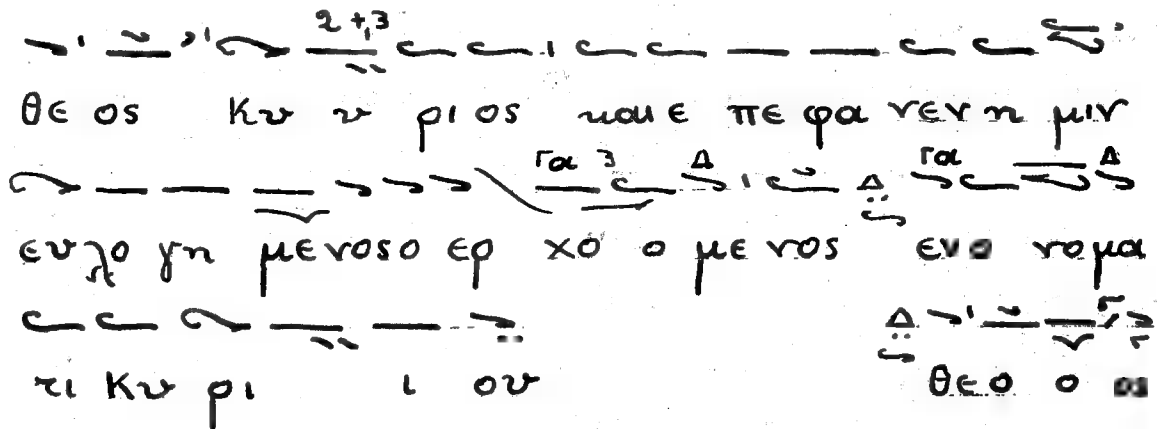 2 + 3
θε ος Κυ υ ρι ος και ε πε φα νεν η μιν
Γα 3 Δ Δ Γα Δ
ευ λο γη μενοσο ερ χο ο με νος ενο νομα
Δ
τι Κυ ρι ι ου θεο ο ος